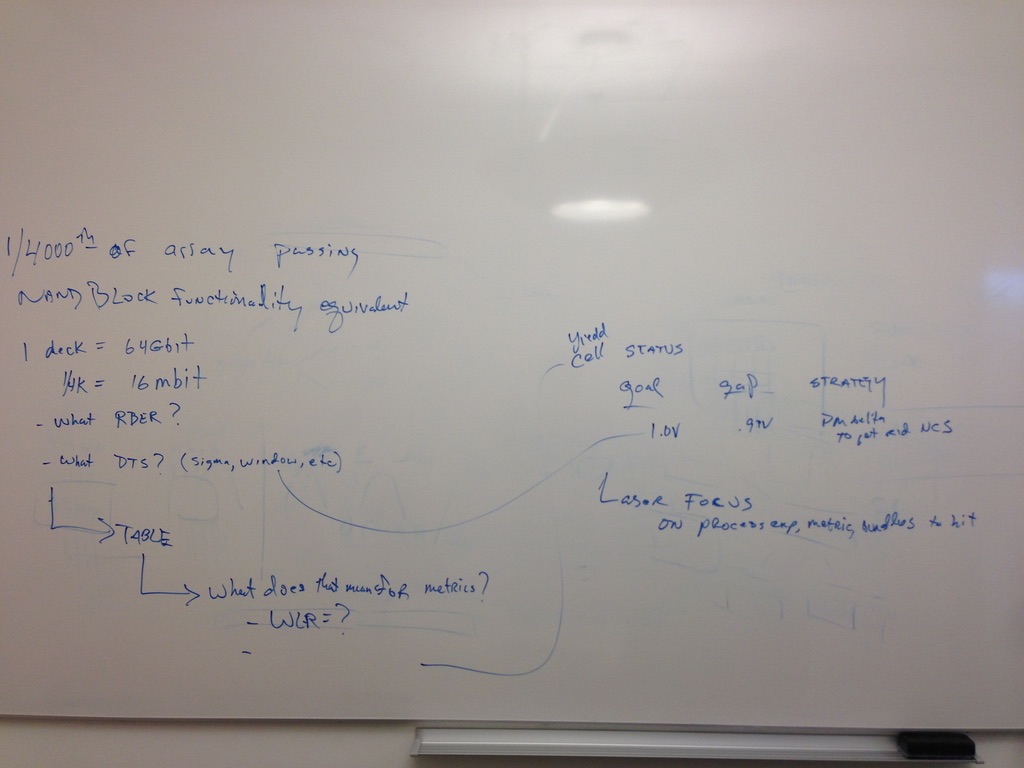 1/4000th of array passing
NAND BLOCK functionality equivalent
1 deck = 64Gbit
1/4K = 16 mbit
- what RBER?
- what DTS? (sigma, window, etc)
TABLE
What does that mean FOR metrics?
- WLR = ?
-
Yield
Cell STATUS
goal gap STRATEGY
1.0V
to get rid NCS
Laser FOCUS
ON process exp, metric, to hit